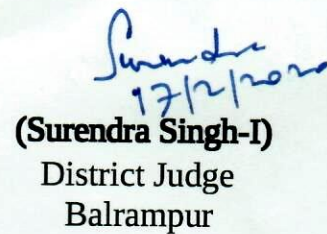 Surendra
17/2/2020
(Surendra Singh-I)
District Judge
Balrampur